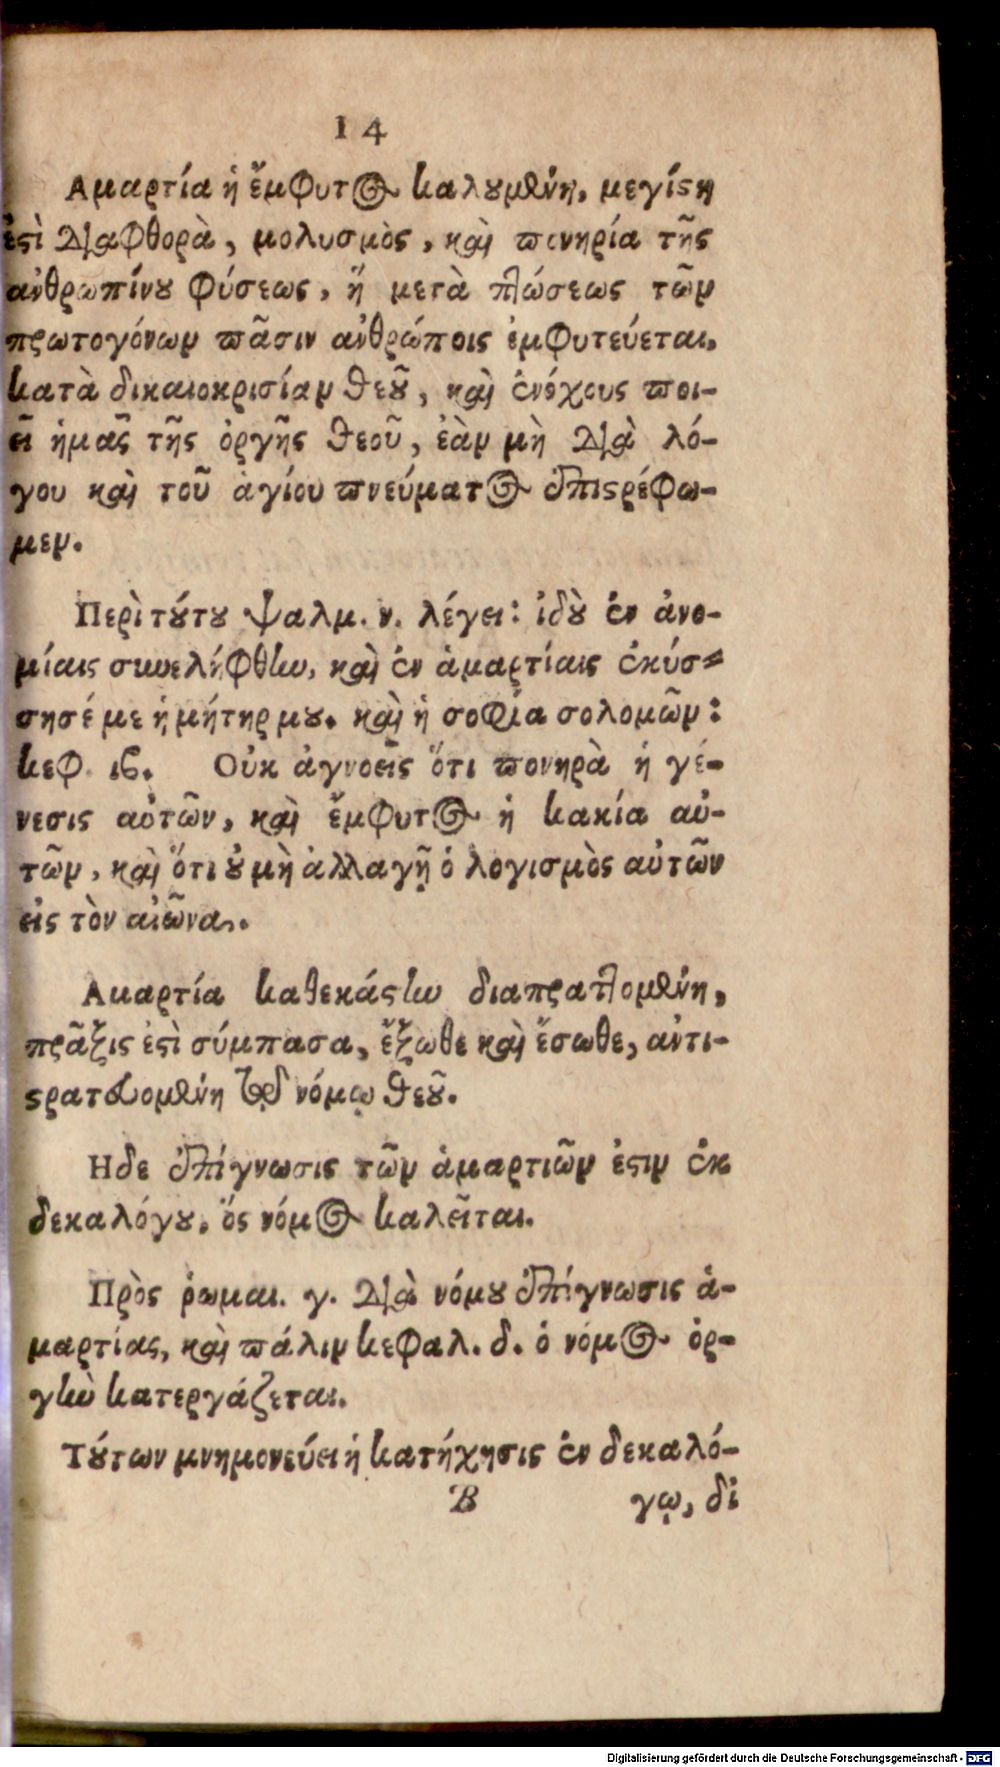 14
Αμαρτία ἡ ἔμφυτος καλουμένη, μεγίστη
ἐστὶ διαφθορὰ, μολυσμὸς, καὶ πονηρία τῆς
ἀνθρωπίνου φύσεως, ἥ μετὰ πτώσεως τῶν
πρωτογόνων πᾶσιν ἀνθρώποις ἐμφυτεύεται,
κατὰ δικαιοκρισίαν θεοῦ, καὶ ἐνόχους ποι-
εῖ ἡμᾶς τῆς ὀργῆς θεοῦ, ἐὰν μὴ διὰ λό-
γου καὶ τοῦ ἁγίου πνεύματος ἐπιστρέφω-
μεν.
Περὶ τούτου ψαλμ. ν. λέγει: ἰδοὺ ἐν ἀνο-
μίαις συνελήφθην, καὶ ἐν ἁμαρτίαις ἐκύσ-
σησέ με ἡ μήτηρ μου. καὶ ἡ σοφία σολομῶν:
κεφ. ιϛ. Οὐκ ἀγνοεῖς ὅτι πονηρὰ ἡ γέ-
νεσις αὐτῶν, καὶ ἔμφυτος ἡ κακία αὐ-
τῶν, καὶ ὅτι οὐ μὴ ἀλλαγῇ ὁ λογισμὸς αὐτῶν
εἰς τὸν αἰῶνα.
Αμαρτία καθεκάστην διαπραττομένη,
πρᾶξις ἐστὶ σύμπασα, ἔξωθε καὶ ἔσωθε, ἀντι-
στρατευομένη τῷ νόμῳ θεοῦ.
Ηδε ἐπίγνωσις τῶν ἁμαρτιῶν ἐστιν ἐκ
δεκαλόγου, ὅς νόμος καλεῖται.
Πρὸς ῥωμαι. γ. διὰ νόμου ἐπίγνωσις ἁ-
μαρτίας, καὶ πάλιν κεφαλ. δ. ὁ νόμος ὀρ-
γὴν κατεργάζεται.
Τούτων μνημονεύει ἡ κατήχησις ἐν δεκαλό-
B γῳ, δἰ
Digitalisierung gefördert durch die Deutsche Forschungsgemeinschaft - DFG